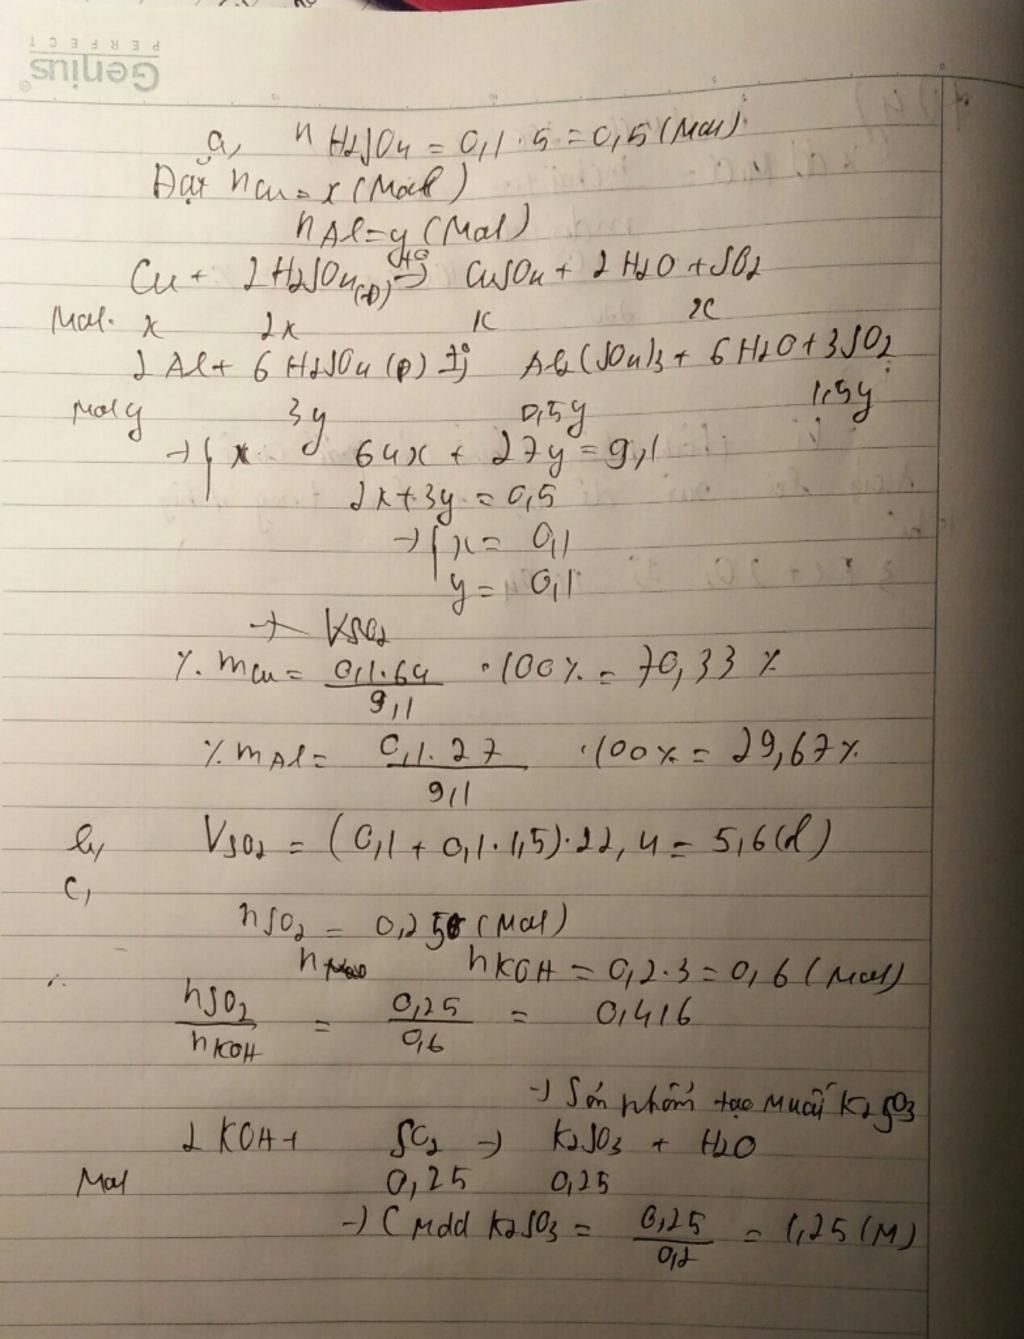 Genius
PERFECT
a, nH2SO4 = 0,1 . 5 = 0,5 (Mol)
Đặt nCu = x (Mol)
nAl = y (Mol)
Cu + 2H2SO4(đ) t° → CuSO4 + 2H2O + SO2
Mol. x 2x x x
2Al + 6H2SO4(đ) t° → Al2(SO4)3 + 6H2O + 3SO2
Mol y 3y 0,5y 1,5y
→ { 64x + 27y = 9,1
2x + 3y = 0,5
→ { x = 0,1
y = 0,1
→ VSO2
%. mCu = 0,1.64 / 9,1 . 100% = 70,33 %
% mAl = 0,1.27 / 9,1 . 100% = 29,67%
b, VSO2 = (0,1 + 0,1.1,5).22,4 = 5,6 (l)
c,
nSO2 = 0,25 (Mol)
nKOH = 0,2.3 = 0,6 (Mol)
nSO2 / nKOH = 0,25 / 0,6 = 0,416
→ Sản phẩm tạo muối K2SO3
2KOH + SO2 → K2SO3 + H2O
Mol 0,25 0,25
→ CMdd K2SO3 = 0,25 / 0,2 = 1,25 (M)